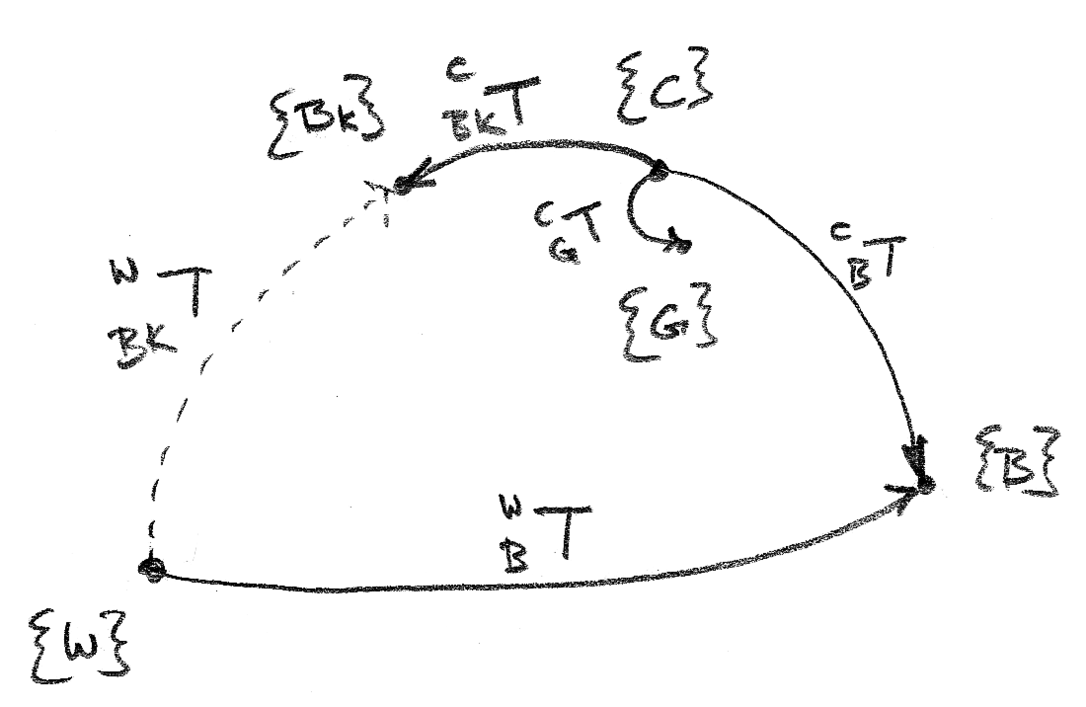 {BK}
C
BK T
{C}
C
G T
{G}
C
B T
W
BK T
{B}
W
B T
{W}